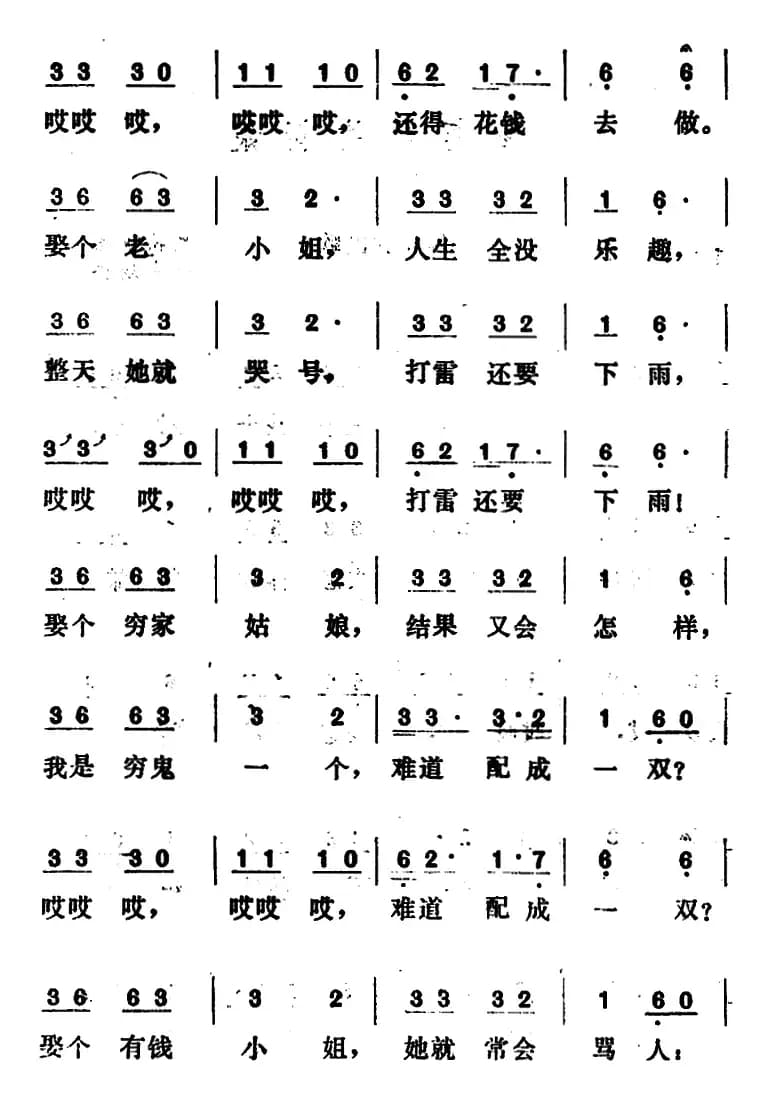 3 3 3 0 | 1 1 1 0 | 6 2 1 7 · | 6 6 |
哎哎 哎, 哎哎 哎, 还得 花钱 去 做。
3 6 6 3 | 3 2 · | 3 3 3 2 | 1 6 · |
娶个 老 小 姐, 人生 全没 乐 趣,
3 6 6 3 | 3 2 · | 3 3 3 2 | 1 6 · |
整天 她就 哭 号, 打雷 还要 下 雨,
3 3 3 0 | 1 1 1 0 | 6 2 1 7 · | 6 6 · |
哎哎 哎, 哎哎 哎, 打雷 还要 下 雨!
3 6 6 3 | 3 2 | 3 3 3 2 | 1 6 |
娶个 穷家 姑 娘, 结果 又会 怎 样,
3 6 6 3 | 3 2 | 3 3 · 3 · 2 | 1 6 0 |
我是 穷鬼 一 个, 难道 配成 一 双?
3 3 3 0 | 1 1 1 0 | 6 2 · 1 · 7 | 6 6 |
哎哎 哎, 哎哎 哎, 难道 配成 一 双?
3 6 6 3 | 3 2 | 3 3 3 2 | 1 6 0 |
娶个 有钱 小 姐, 她就 常会 骂 人: